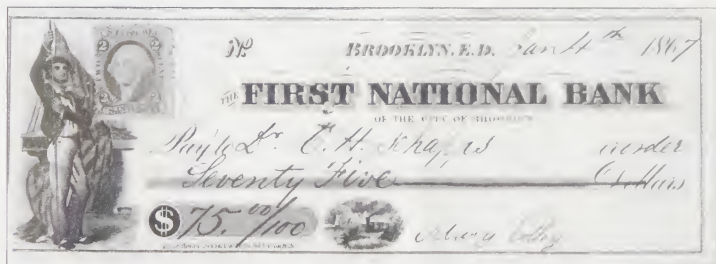 No. BROOKLYN. E.D. Jan 4th 1867
THE FIRST NATIONAL BANK
OF THE CITY OF BROOKLYN
Pay to Dr. C. H. or order
Seventy Five Dollars
$ 75.00/100
2 2